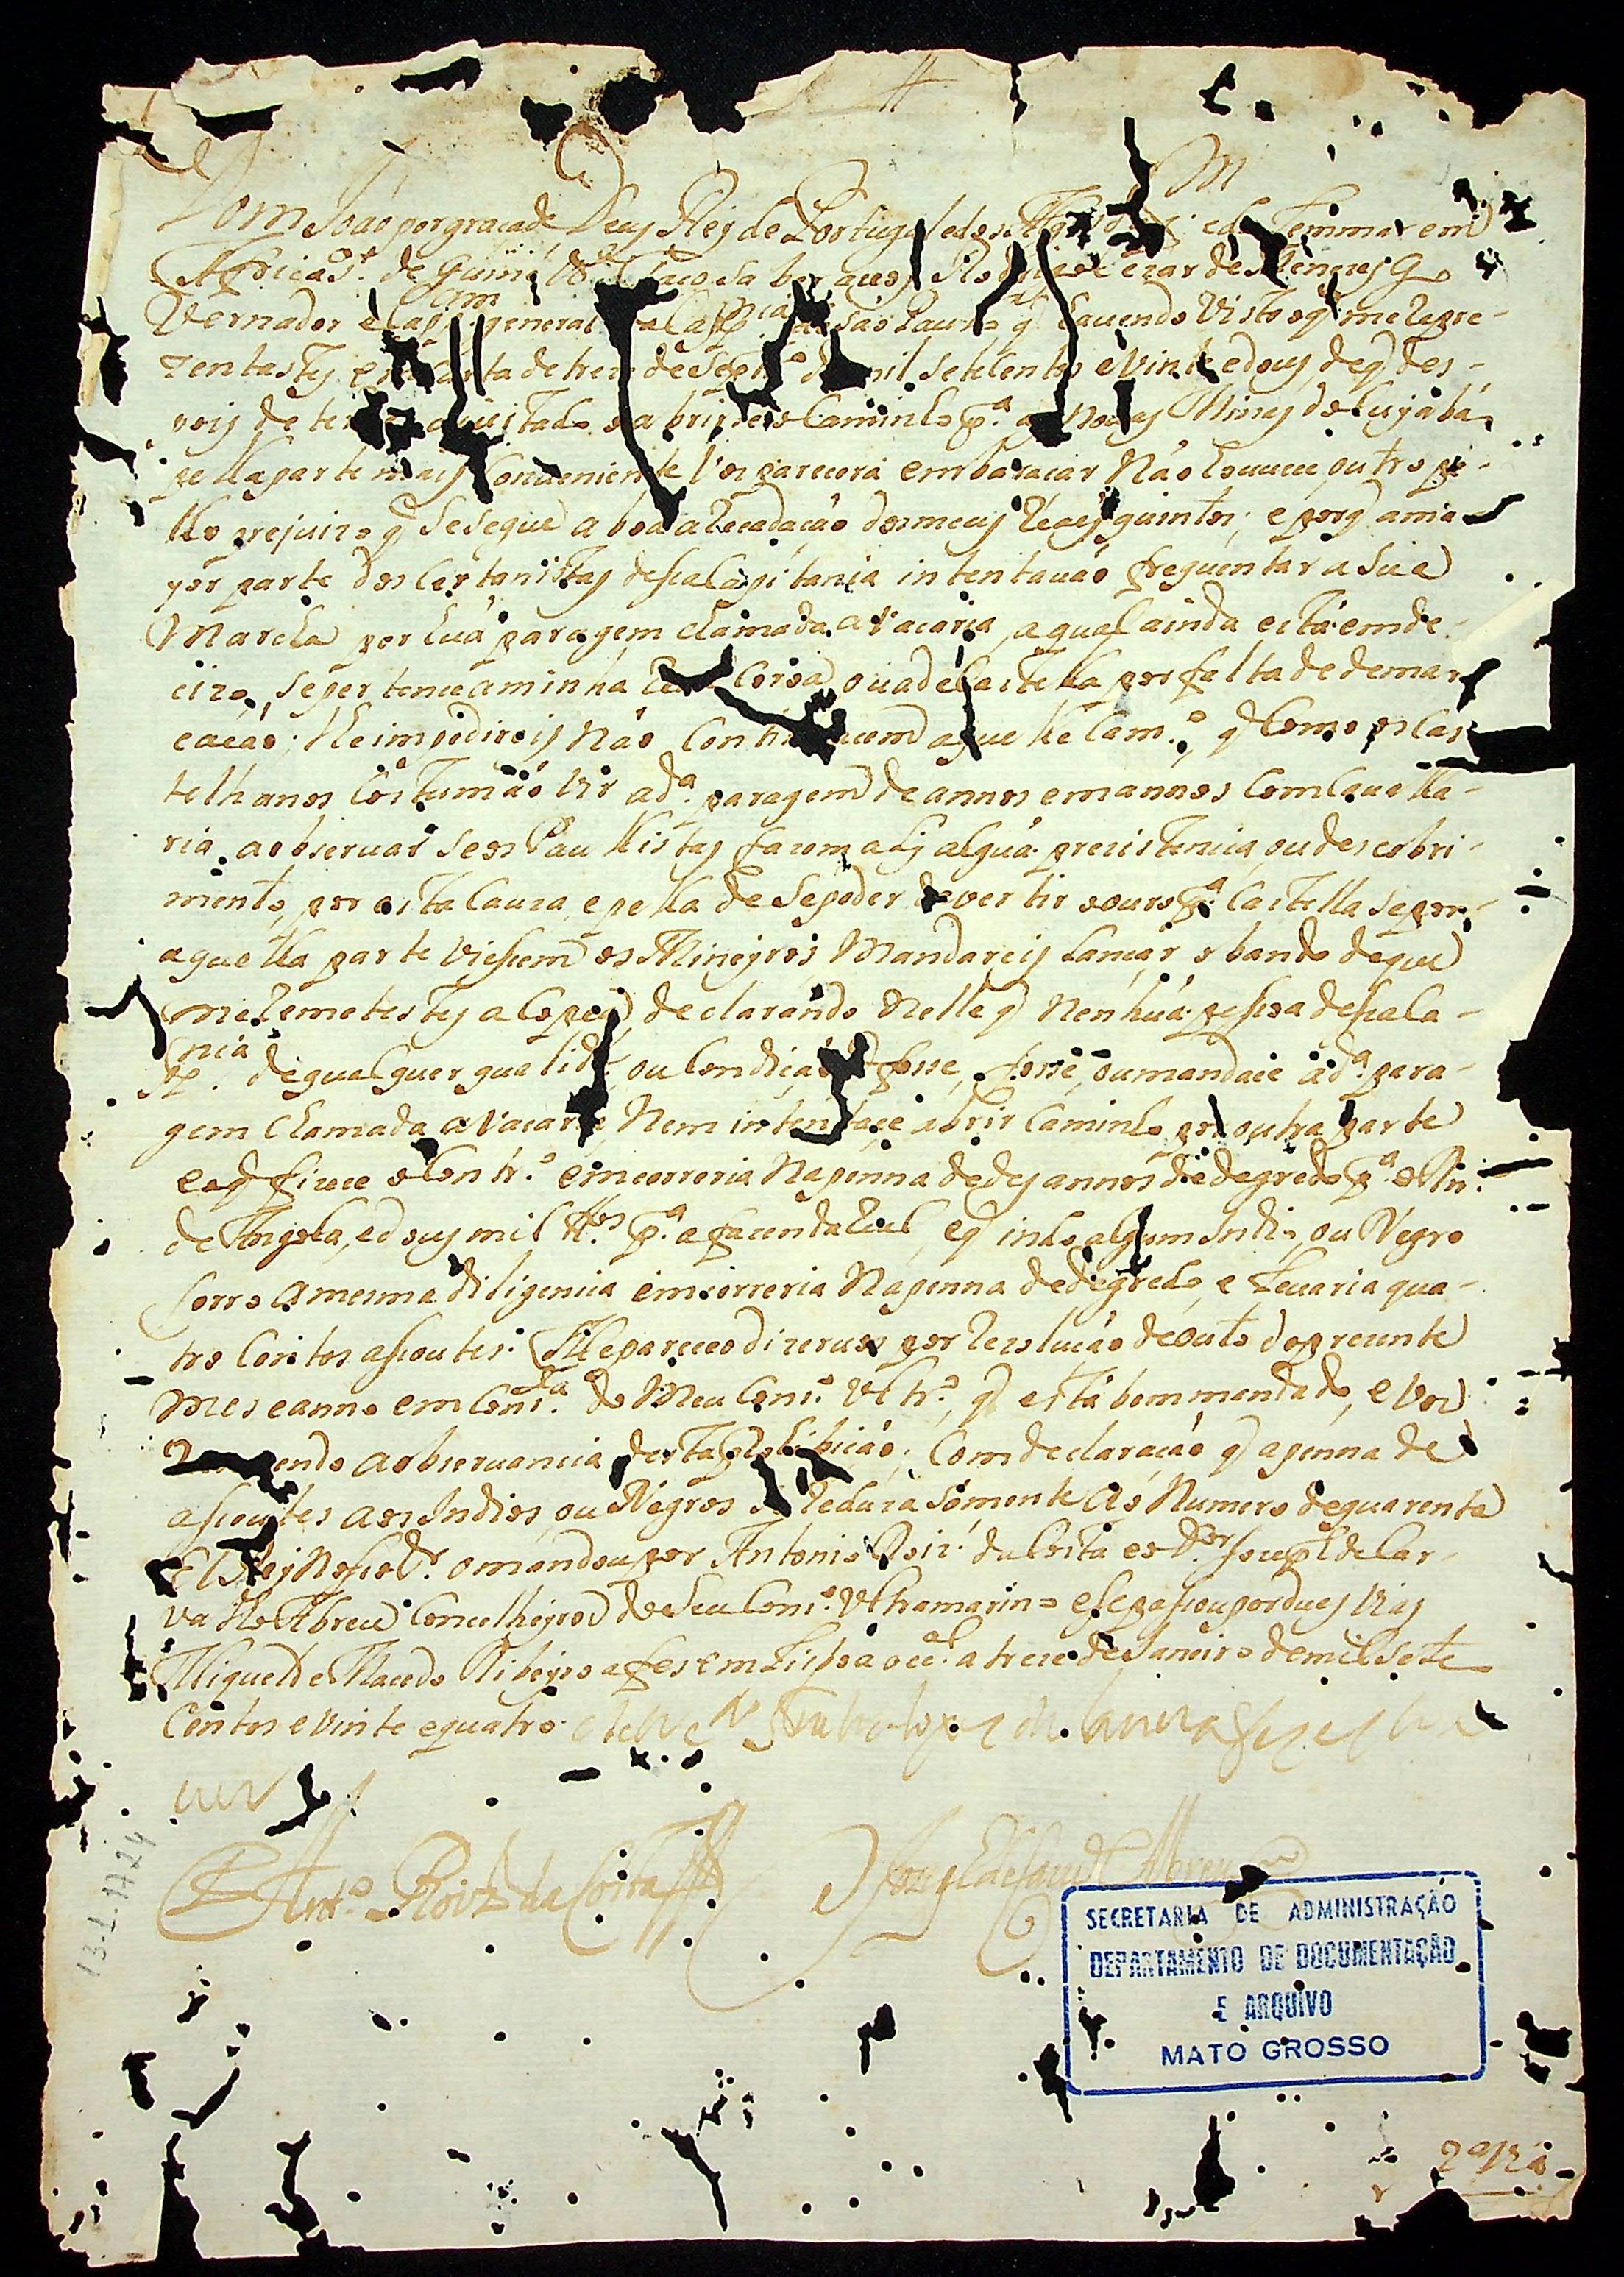 Dom João por graça de Deus Rey de Portugal e dos Alg e da lem mar em
Africa Sr. de Guiné &ª Faço saber a vos Rodrigo Cezar de Menezes Go
vernador e Capam general da Cappnia de São Paulo q havendo visto o q me repre-
zentastes em Carta de treze de Septro de mil setecentos e vinte e dous, de q des-
pois de ter ajustado o abrirse o Caminho pa as Novas Minas do Cuyabá,
pella parte mais Conveniente vos parecera embaraçar Não houvece outro pe-
llo prejuizo q se segue a boa arecadação dos meus Reaes quintos; e porq a ma
yor parte dos Certanistas dessa Capitania intentavão frequentar a sua
Marcha por huá paragem chamada a Vacaria, a qual ainda está em de-
cizo, se pertence a minha Real Coroa, ou a de Castella por falta de demar
cação; lhe impedireis Não Continuacem aquelle Camo, q Como os Cas
telhanos Costumão vir a da paragem de annos em annos Com Cavalla-
ria a observar se os Paullistas fazem aly algúa prezistencia, ou descobri-
mento, por esta Cauza, e pella de se poder devertir o ouro pa Castella se por
aquella parte viessem os Mineyros Mandareis lançar o bando de que
me Remetestes a Copea, declarando Nelle q Nenhúa pessoa dessa Ca-
ppnia de qualquer qualide ou Condição q fosse, fosse, ou mandace a da para-
gem Chamada a Vacaria, Nem intentaçe abrir Caminho por outra parte
e o q fizece o Contro emcorreria Na penna de des annos de degredo pa o Rno
de Angola, e dous mil pa a fazenda Real, e q indo algum Indio, ou Negro
forro a mesma diligencia emcorreria Na penna de degredo, e Levaria qua-
tro Centos assoutes. Me pareceo dizervos por Rezolução de outo do prezente
mes e anno em Consta do Meu Conso Ultro, q está bem mandado, e vos
endo a observancia desta Prohibição; Com declaração q a penna de
assoutes aos Indios, ou Negros se Reduza sómente ao Numero de quarenta
El Rey Nosso Sr. o mandou por Antonio Roiz. da Costa e o Dor Joseph de Car
valho Abreu Concelheyros do Seu Conso Ultramarino e se passou por duas vias
Miguel de Macedo Ribeyro a fes em Lisboa occal a treze de Janeiro de mil sete
Centos e vinte e quatro.
Anto Roiz da Costa Joseph de Carvo Abreu
13-1-1724
SECRETARIA DE ADMINISTRAÇÃO
DEPARTAMENTO DE DOCUMENTAÇÃO
E ARQUIVO
MATO GROSSO
2a via